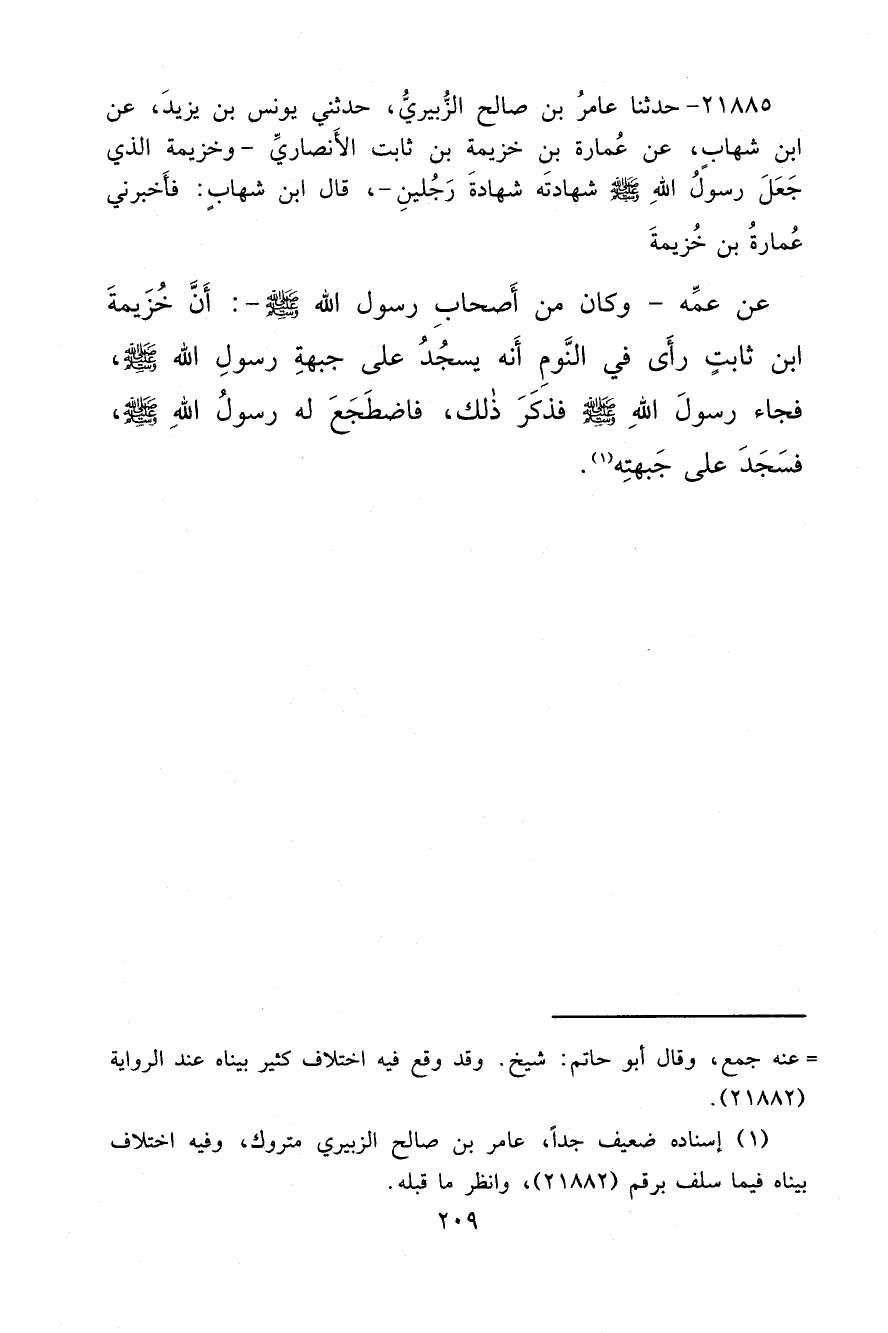 ٢١٨٨٥- حدثنا عامرُ بن صالح الزُّبيريُّ، حدثني يونس بن يزيدَ، عن
ابن شهابٍ، عن عُمارة بن خزيمة بن ثابت الأَنصاريِّ -وخزيمة الذي
جَعَلَ رسولُ اللهِ ﷺ شهادتَه شهادةَ رَجُلينِ-، قال ابن شهابٍ: فأَخبرني
عُمارةُ بن خُزيمةَ
عن عمِّه - وكان من أَصحابِ رسول الله ﷺ-: أَنَّ خُزَيمةَ
ابن ثابتٍ رأَى في النَّومِ أَنه يسجُدُ على جبهةِ رسولِ الله ﷺ،
فجاء رسولَ اللهِ ﷺ فذكَرَ ذٰلك، فاضطَجَعَ له رسولُ اللهِ ﷺ،
فسَجَدَ على جَبهتِه(١).
= عنه جمع، وقال أبو حاتم: شيخ. وقد وقع فيه اختلاف كثير بيناه عند الرواية
(٢١٨٨٢).
(١) إسناده ضعيف جداً، عامر بن صالح الزبيري متروك، وفيه اختلاف
بيناه فيما سلف برقم (٢١٨٨٢)، وانظر ما قبله.
٢٠٩